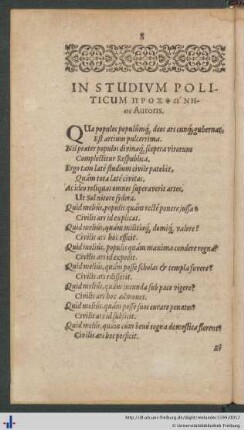 8
IN STUDIVM POLI-
TICUM ΠΡΟΣΦΩΝΗ-
Autoris.
QVa populos populíq́,, deos ars cunq́, gubernat,
Est artium pulcerrima.
Nil præter populos divinaq́, supera virorum
Complectitur Respublica.
Ergo tam latè studium civile patebit,
Quàm tota latè civitas,
Ac ideo reliquas omnes superaverit artes,
Ut Sol nitore sydera.
Quid melius, populis quàm rectè ponere jussa
Civilis ars id explicat.
Quid melius, quàm militiaq́, domiq́, valere?
Civilis ars hoc efficit.
Quid melius, populis quàm maxima condere regna?
Civilis ars id expedit.
Quid melius, quàm posse scholas & templa fovere?
Civilis ars id
Quid melius, quàm jucunda sub pace vigere?
Civilis ars hoc admonet.
Quid melius, quàm posse suos curare penates?
Civilis ars id subjicit.
Quid melius, quàm cùm benè regna domestica florent?
Civilis ars hoc perficit.
http://dl.ub.uni-freiburg.de/diglit/melander1599/0012
© Universitätsbibliothek Freiburg